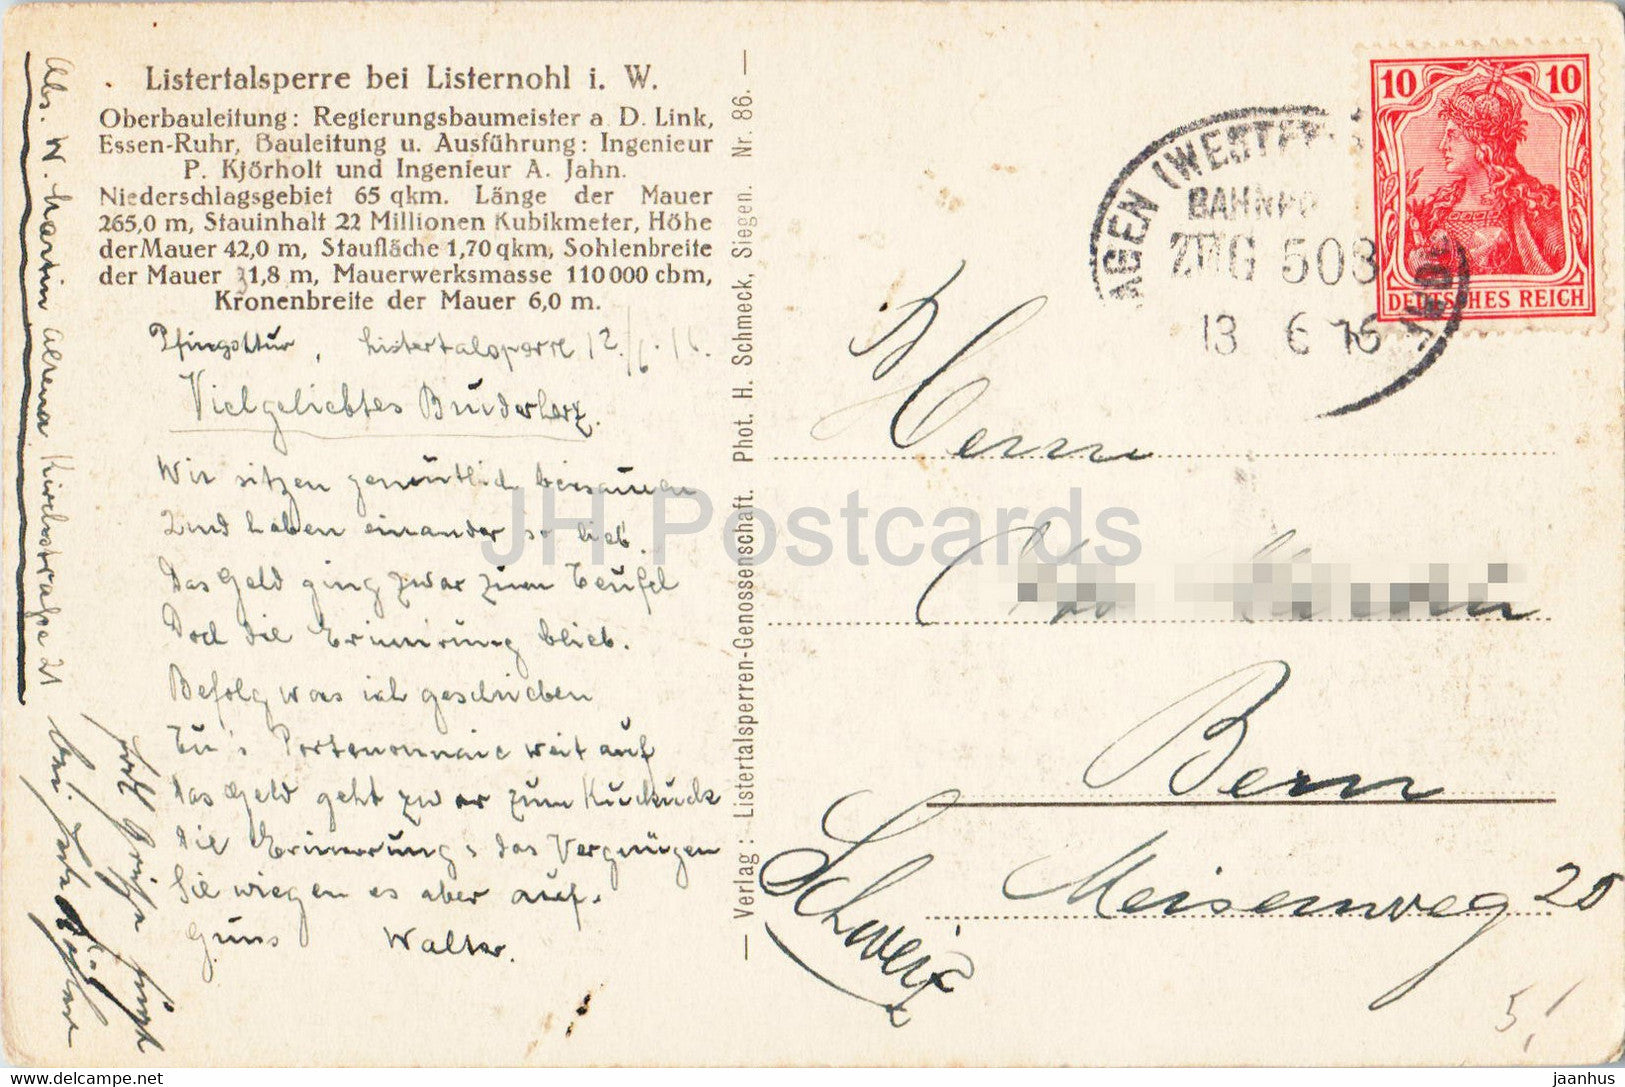 Listertalsperre bei Listernohl i. W.
Oberbauleitung: Regierungsbaumeister a. D. Link,
Essen-Ruhr, Bauleitung u. Ausführung: Ingenieur
P. Kjörholt und Ingenieur A. Jahn.
Niederschlagsgebiet 65 qkm. Länge der Mauer
265,0 m, Stauinhalt 22 Millionen Kubikmeter, Höhe
der Mauer 42,0 m, Staufläche 1,70 qkm, Sohlenbreite
der Mauer 31,8 m, Mauerwerksmasse 110000 cbm,
Kronenbreite der Mauer 6,0 m.
Pfingsttur, Listertalsperre 12./6.16.
Vielgeliebtes Bruderherz.
Wir sitzen gemütlich beisammen
Und haben einander so lieb.
Das Geld ging zwar zum Teufel
Doch die Erinnerung blieb.
Befolg was ich geschrieben
Tu's Portemonnaie weit auf
Das Geld geht zwar zum Kuckuck
Die Erinnerung & das Vergnügen
Sie wiegen es aber auf.
Walter.
Abs. W. Martin Altena Kirchstraße 21
— Verlag: Listertalsperren-Genossenschaft. Phot. H. Schmeck, Siegen. Nr. 86. —
10 10
DEUTSCHES REICH
AGEN (WESTF
BAHNPO
ZUG 508
13 6 16
Herrn
Bern
Meisenweg 20
Schweiz
5,/
JH Postcards
hipstamp.com/store/jh-postcards
jaanhus